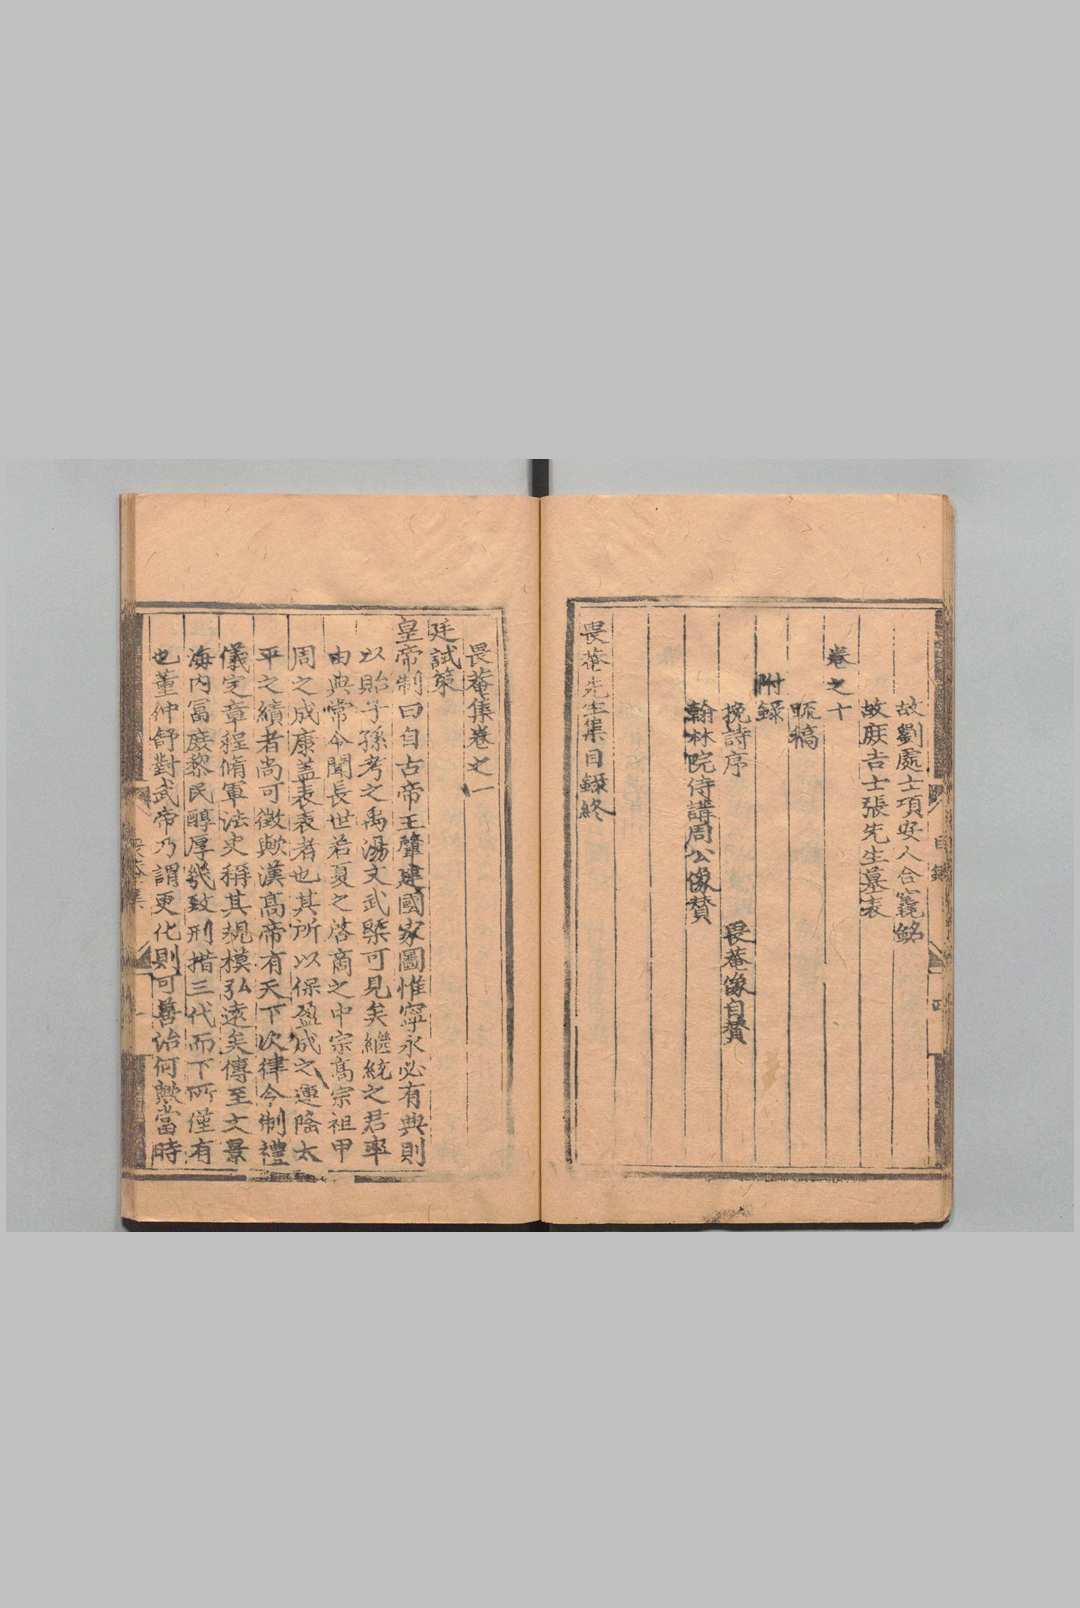 故劉處士項安人合窆銘
故庶吉士張先生墓表
卷之十
甁稿
附錄
挽詩序
翰林院侍講周公像贊
畏菴像自贊
畏菴先生集目錄終
畏菴集卷之一
廷試策
皇帝制曰自古帝王肇建國家圖惟寧永必有典則
以貽子孫考之禹湯文武槩可見矣繼統之君率
由典常今聞長世若夏之啓商之中宗高宗祖甲
周之成康盖表表者也其所以保盈成之運隆太
平之績者尚可徵歟漢高帝有天下次律令制禮
儀定章程脩軍法史稱其規模弘遠矣傳至文景
海內富庶黎民醇厚幾致刑措三代而下所僅有
也董仲舒對武帝乃謂更化則可善治何歟當時